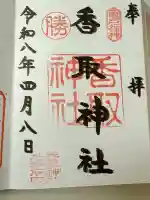 奉拝
香取神社
香取神社
勝
令和八年四月八日